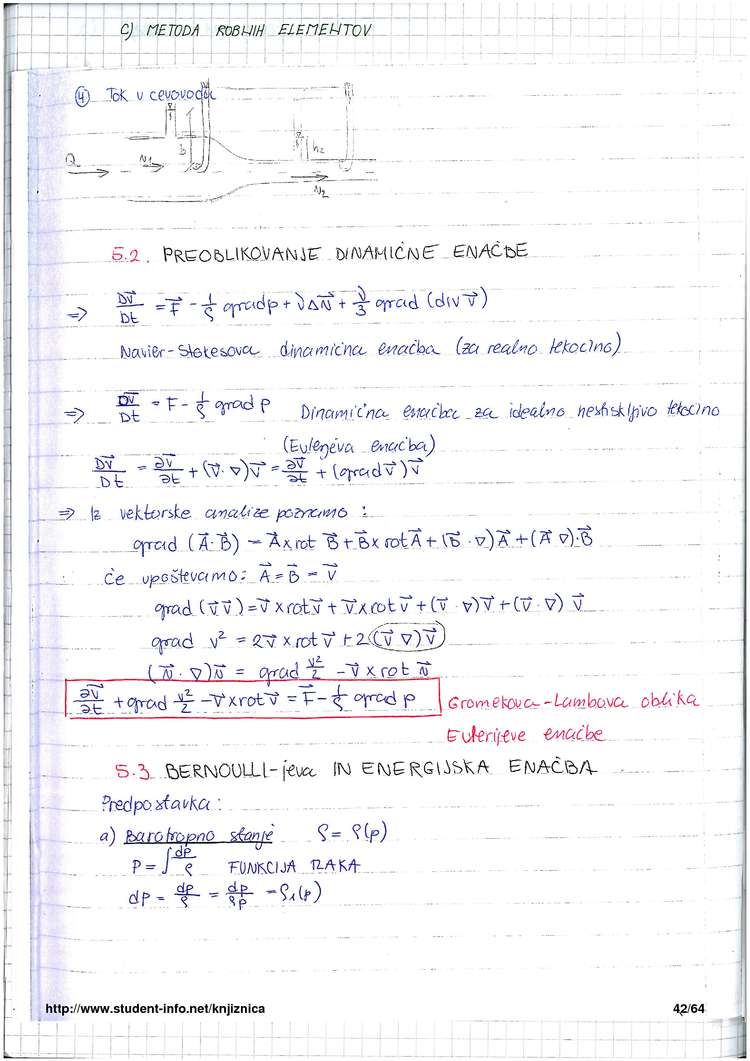 C) METODA ROBNIH ELEMENTOV
④ Tok v cevovodu
b h₂
Q N₁
N₂
5.2. PREOBLIKOVANJE DINAMIČNE ENAČBE
⇒ Dv⃗/Dt = F⃗ - 1/ρ grad p + ν Δv⃗ + ν/3 grad (div v⃗)
Navier-Stokesova dinamična enačba (za realno tekočino)
⇒ Dv⃗/Dt = F - 1/ρ grad p Dinamična enačba za idealno nestisljivo tekočino
(Eulerjeva enačba)
Dv⃗/Dt = ∂v⃗/∂t + (v⃗ · ∇)v⃗ = ∂v⃗/∂t + (grad v⃗)v⃗
⇒ Iz vektorske analize poznamo :
grad (A⃗·B⃗) = A⃗ x rot B⃗ + B⃗ x rot A⃗ + (B⃗ · ∇)A⃗ + (A⃗ ∇)·B⃗
Če upoštevamo: A⃗ = B⃗ = v⃗
grad (v⃗ v⃗) = v⃗ x rot v⃗ + v⃗ x rot v⃗ + (v⃗ · ∇)v⃗ + (v⃗ · ∇) v⃗
grad v² = 2v⃗ x rot v⃗ + 2(v⃗ ∇)v⃗
(v⃗ · ∇)v⃗ = grad v²/2 - v⃗ x rot v⃗
∂v⃗/∂t + grad v²/2 - v⃗ x rot v⃗ = F⃗ - 1/ρ grad p Gromekova-Lambova oblika
Eulerijeve enačbe
5.3 BERNOULLI-jeva IN ENERGIJSKA ENAČBA
Predpostavka :
a) Barotropno stanje ρ = ρ(p)
P = ∫ dp/ρ FUNKCIJA TLAKA
dP = dp/ρ = dp/ρp = ρ₁(p)
http://www.student-info.net/knjiznica 42/64